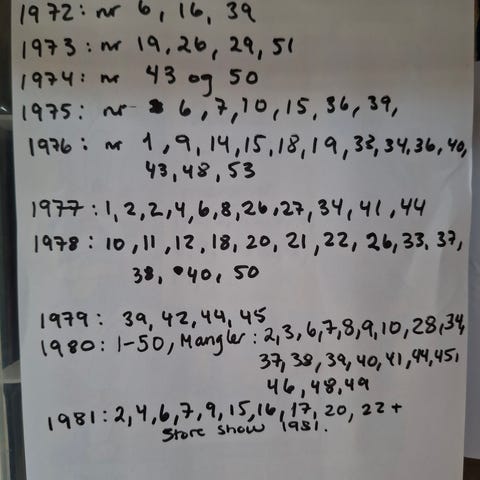 1972: nr 6, 16, 39
1973: nr 19, 26, 29, 51
1974: nr 43 og 50
1975: nr 6, 7, 10, 15, 36, 39,
1976: nr 1, 9, 14, 15, 18, 19, 33, 34, 36, 40,
43, 48, 53
1977: 1, 2, 2, 4, 6, 8, 26, 27, 34, 41, 44
1978: 10, 11, 12, 18, 20, 21, 22, 26, 33, 37,
38, 40, 50
1979: 39, 42, 44, 45
1980: 1-50, Mangler: 2, 3, 6, 7, 8, 9, 10, 28, 34,
37, 38, 39, 40, 41, 44, 45,
46, 48, 49
1981: 2, 4, 6, 7, 9, 15, 16, 17, 20, 22 +
Store show 1981.